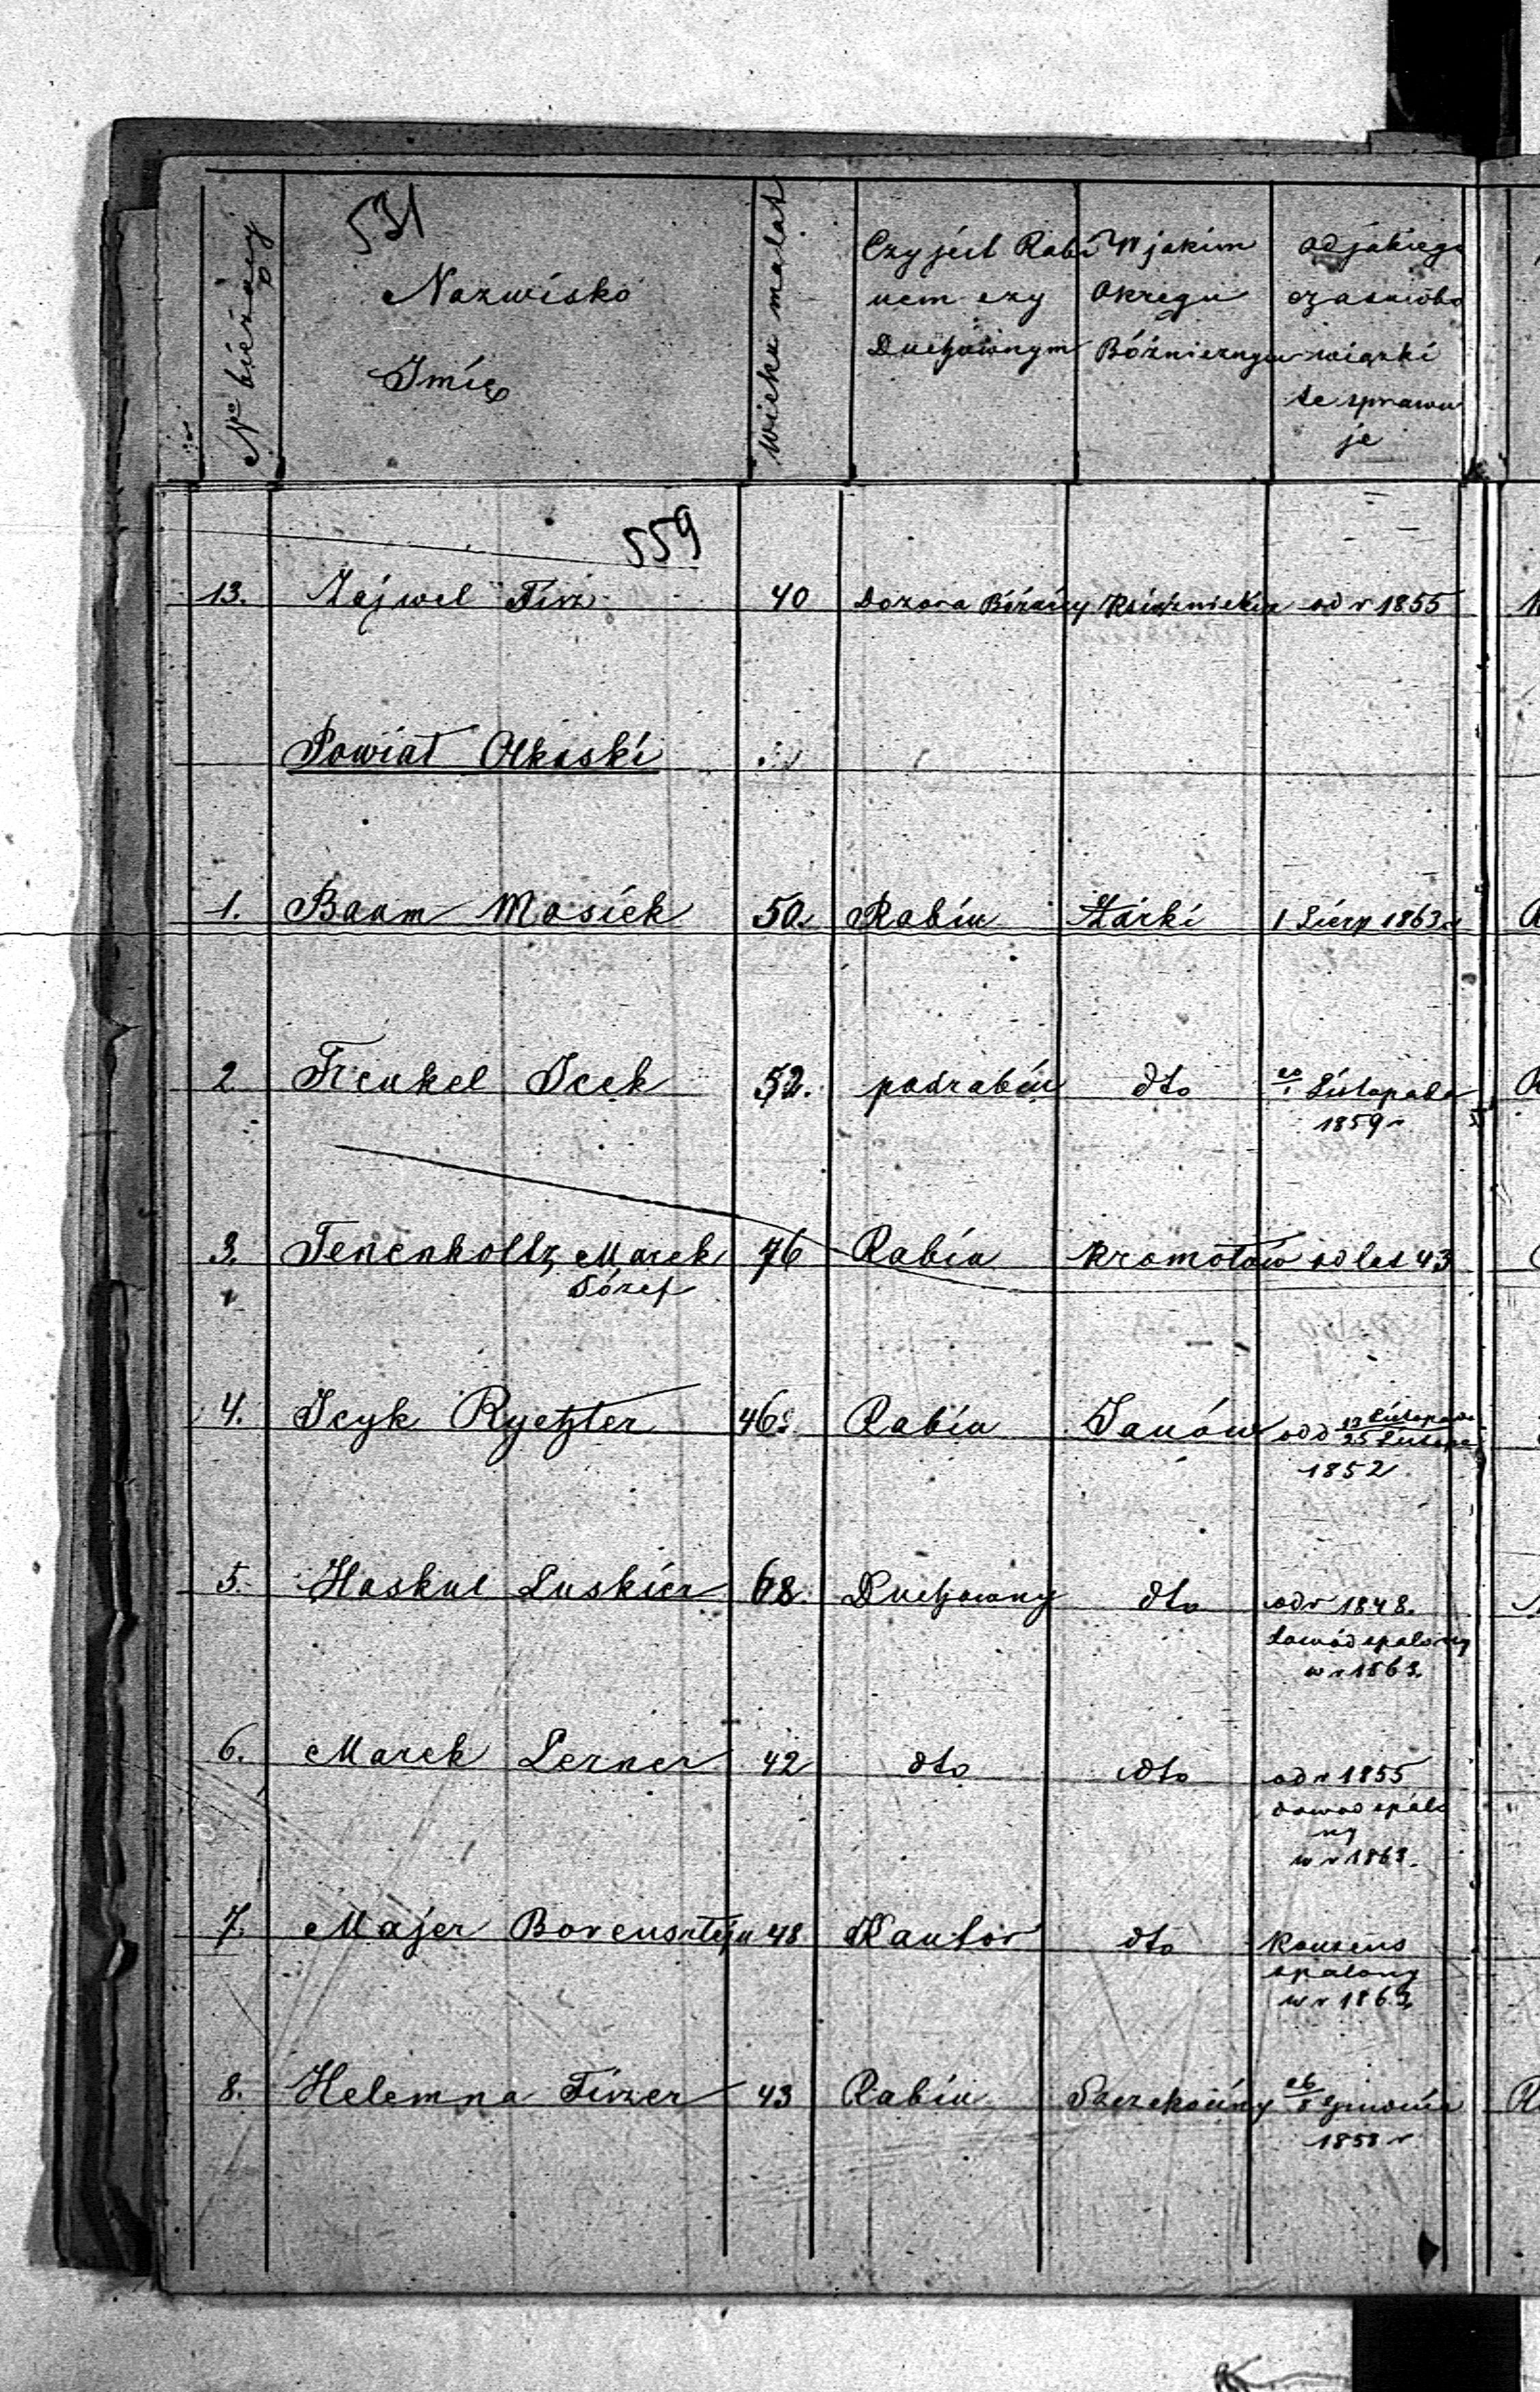 531
Nº bieżący
Nazwisko
Imię
wieku ma lat
Czy jest Rabi
nem czy
Duchownym
W jakim
Okręgu
Bóżniczym
od jakiego
czasu obo
wiązki
te sprawu
je
559
13. Zajwel Firz 40 Dozora Bóżniczy Książnickiego od r 1855
Powiat Olkuski
1. Baum Mosiek 50. Rabin Żarki 1 Sierp 1863 r
2 Frenkel Icek 52. podrabin dto Listopada
1859 r
3. Tenenholtz Marek 76 Rabin Kromołów od lat 43
Józef
4. Icyk Rychter 46. Rabin Janów od d 13 Listopada
25 Listopa
1852
5. Haskul Luskier 68. Duchowny dto od r 1848.
dowód spalony
w r 1863.
6. Marek Lerner 42 dto dto od r 1855
dowod spalo
ny
w r 1863.
7. Majer Borensztejn 48 Kantor dto Konsens
spalony
w r 1863
8. Helemna Firzer 43 Rabin Szczekociny Grudnia
1858 r